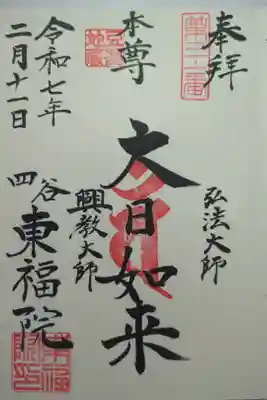 奉拝
第二十一番
弘法大師
本尊
大日如来
興教大師
令和七年
二月十一日
四谷
東福院